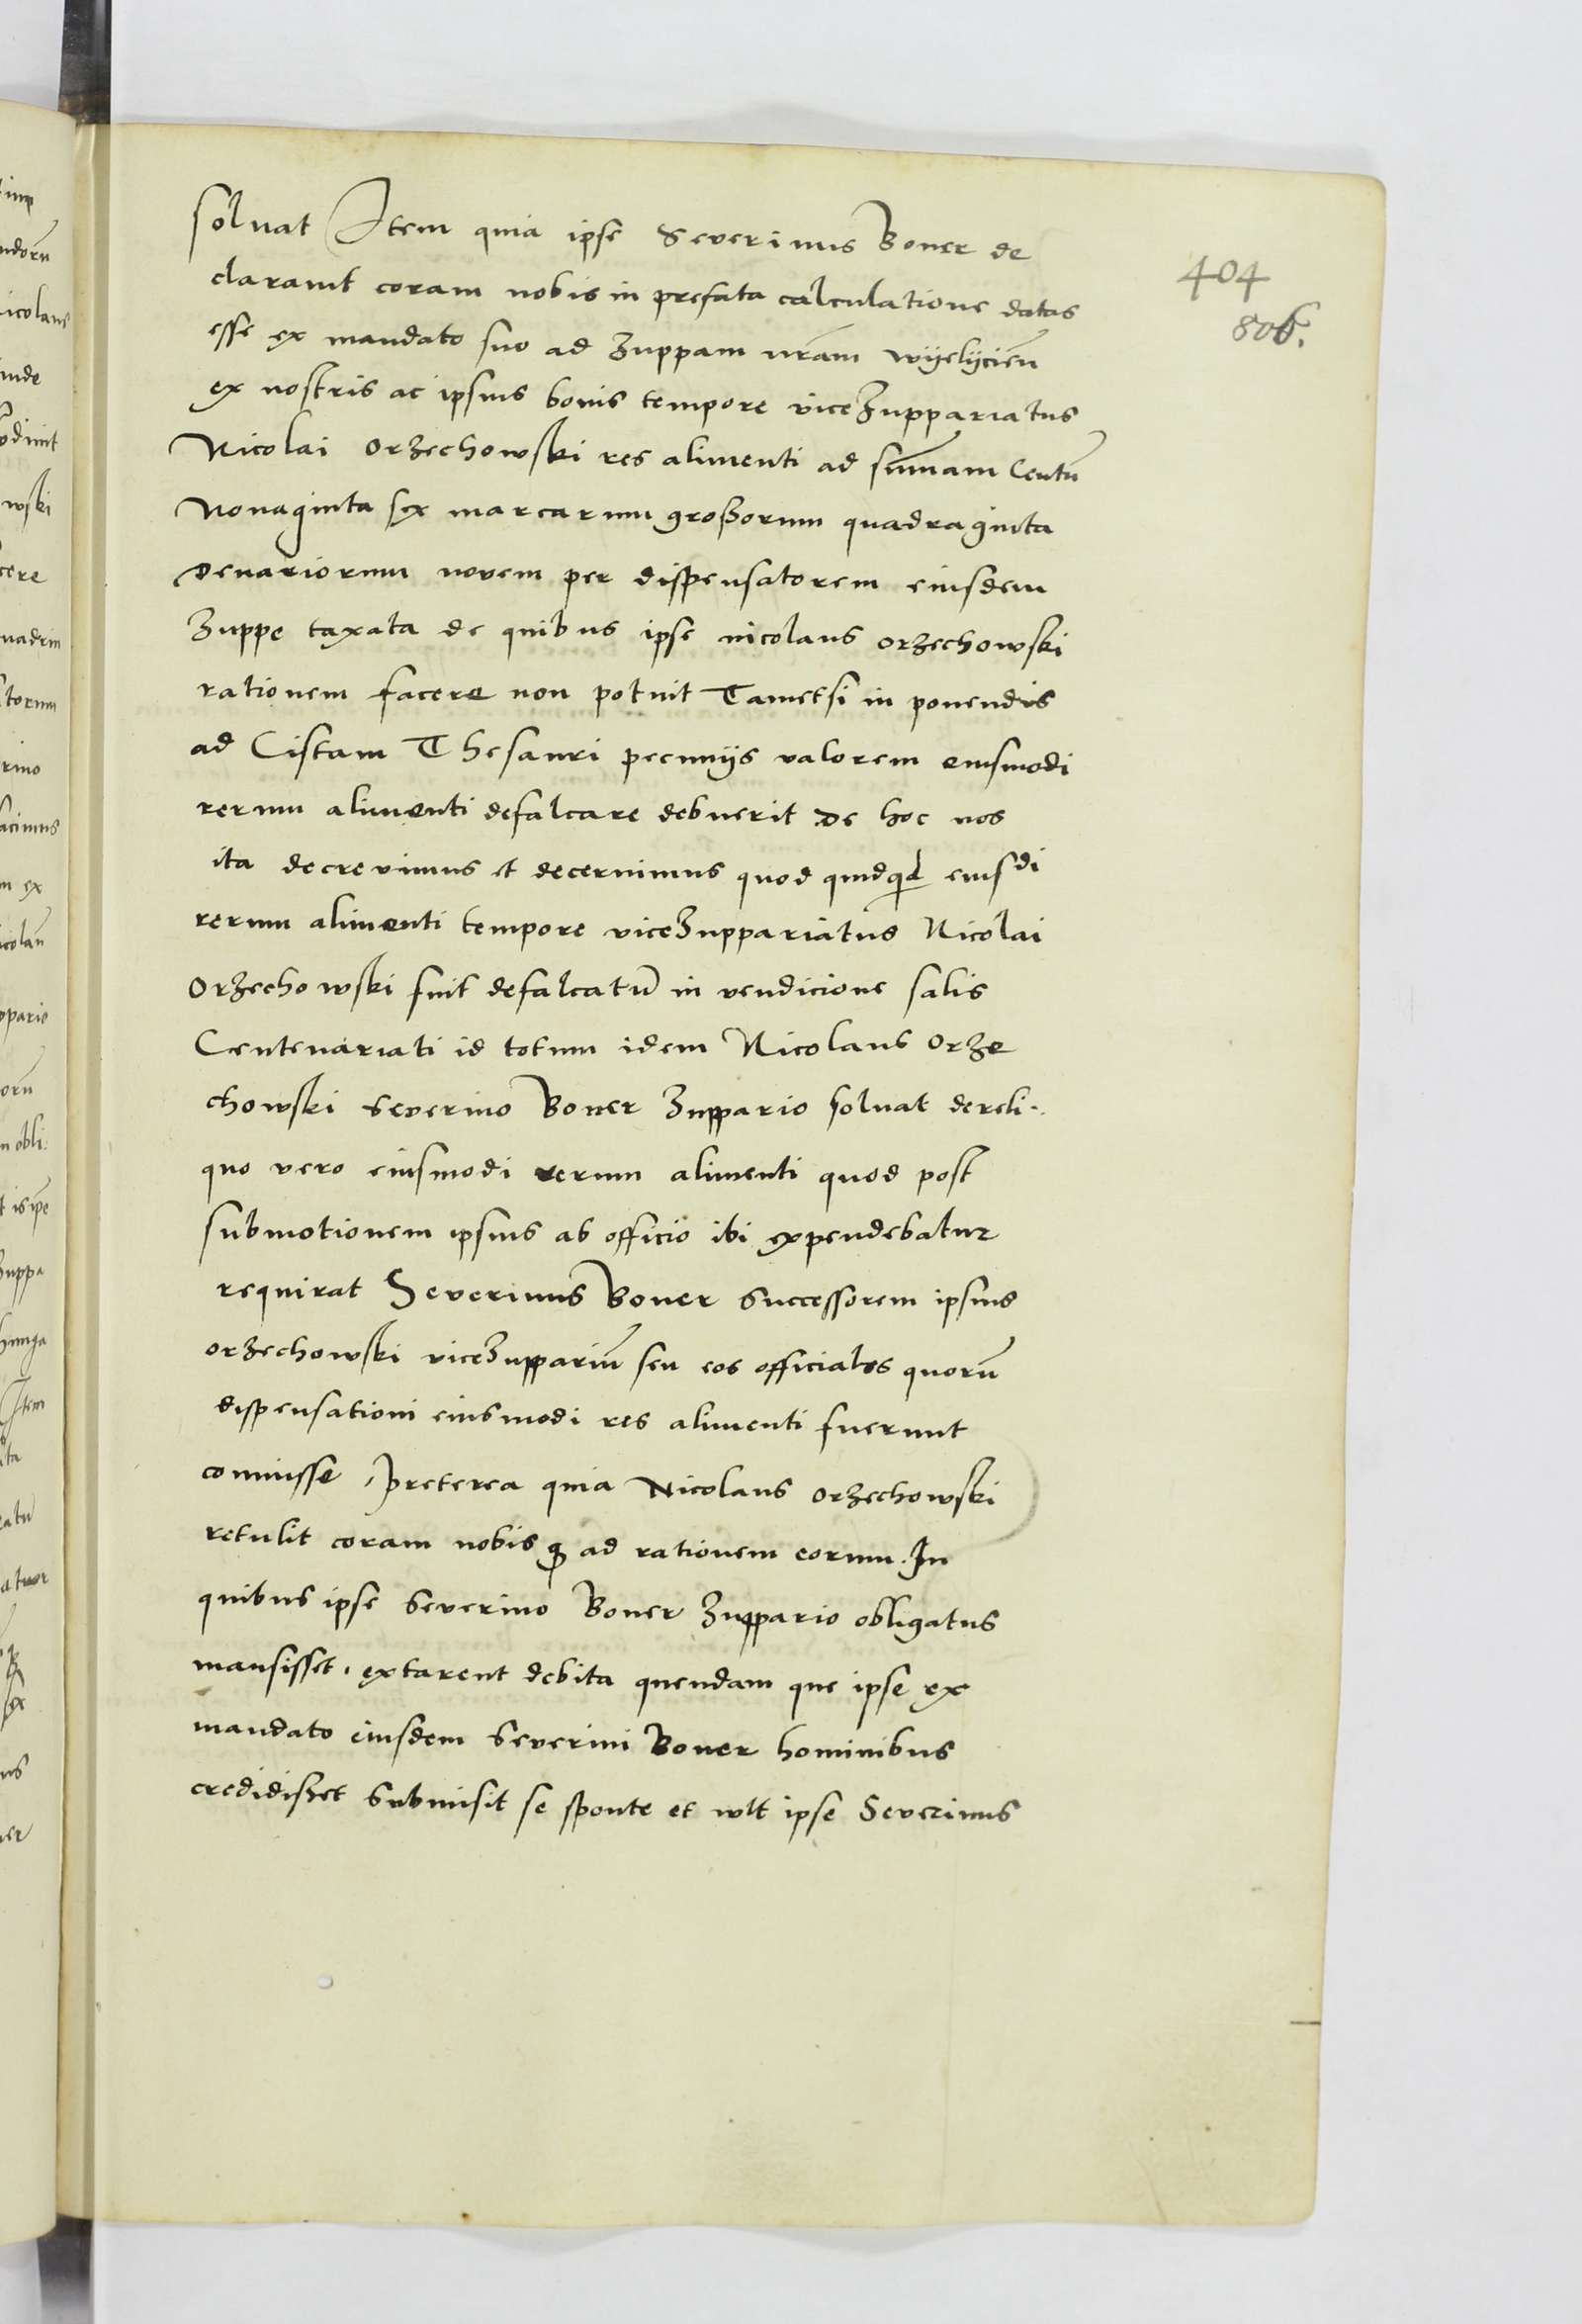 solvat Item quia ipse Severinus Boner de
claravit coram nobis in prefata calculatione datas
esse ex mandato suo ad Zuppam nram wijelijcien
ex nostris ac ipsius bonis tempore viceZuppariatus
Nicolai orzechowski res alimenti ad sumam Centu
Nonaginta sex marcarum großorum quadraginta
Denariorum novem per dispensatorem eiusdem
Zuppe taxata de quibus ipse nicolaus orzechowski
rationem facere non potuit Tametsi in ponendis
ad Cistam Thesauri pecunijs valorem eiusmodi
rerum alimenti defalcare debuerit De hoc nos
ita decrevimus et decernimus quod quidqid eiusdi
rerum alimenti tempore viceZuppariatus Nicolai
Orzechowski fuit defalcatu in vendicione salis
Centenariati id totum idem Nicolaus Orze
chowski Severino Boner Zuppario solvat dereli-
quo vero eiusmodi rerum alimenti quod post
submotionem ipsius ab officio ibi expendebatur
requirat Severinus Boner Successorem ipsius
orzechowski viceZuppariu seu eos officiales quoru
dispensationi eiusmodi res alimenti fuerunt
comisse, Preterea quia Nicolaus orzechowski
retulit coram nobis q ad rationem eorum. In
quibus ipse Severino Boner Zuppario obligatus
mansisset, extarent debita quendam que ipse ex
mandato eiusdem Severini Boner hominibus
credidisset Submisit se sponte et wlt ipse Severinus
404
806.